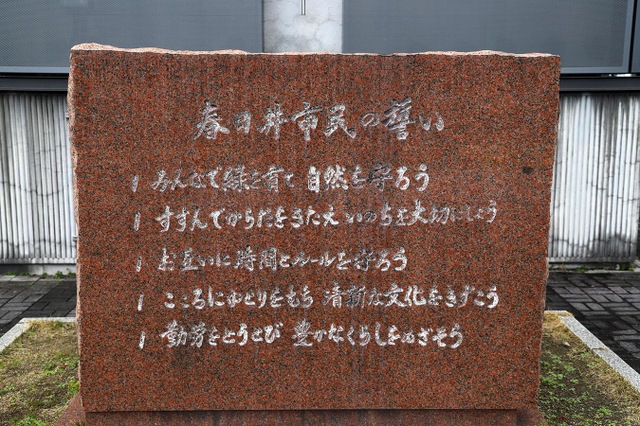 春日井市民の誓い
1 みんなで緑を育て 自然を守ろう
1 すすんでからだをきたえ いのちを大切にしよう
1 お互いに時間とルールを守ろう
1 こころにゆとりをもち 清新な文化をきずこう
1 勤労をとうとび 豊かなくらしをめざそう